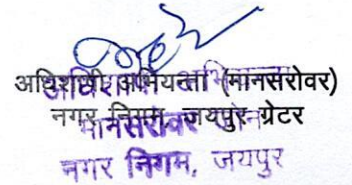 अधिशाषी अभियन्ता (मानसरोवर)
नगर निगम, जयपुर ग्रेटर
मानसरोवर जोन
नगर निगम, जयपुर